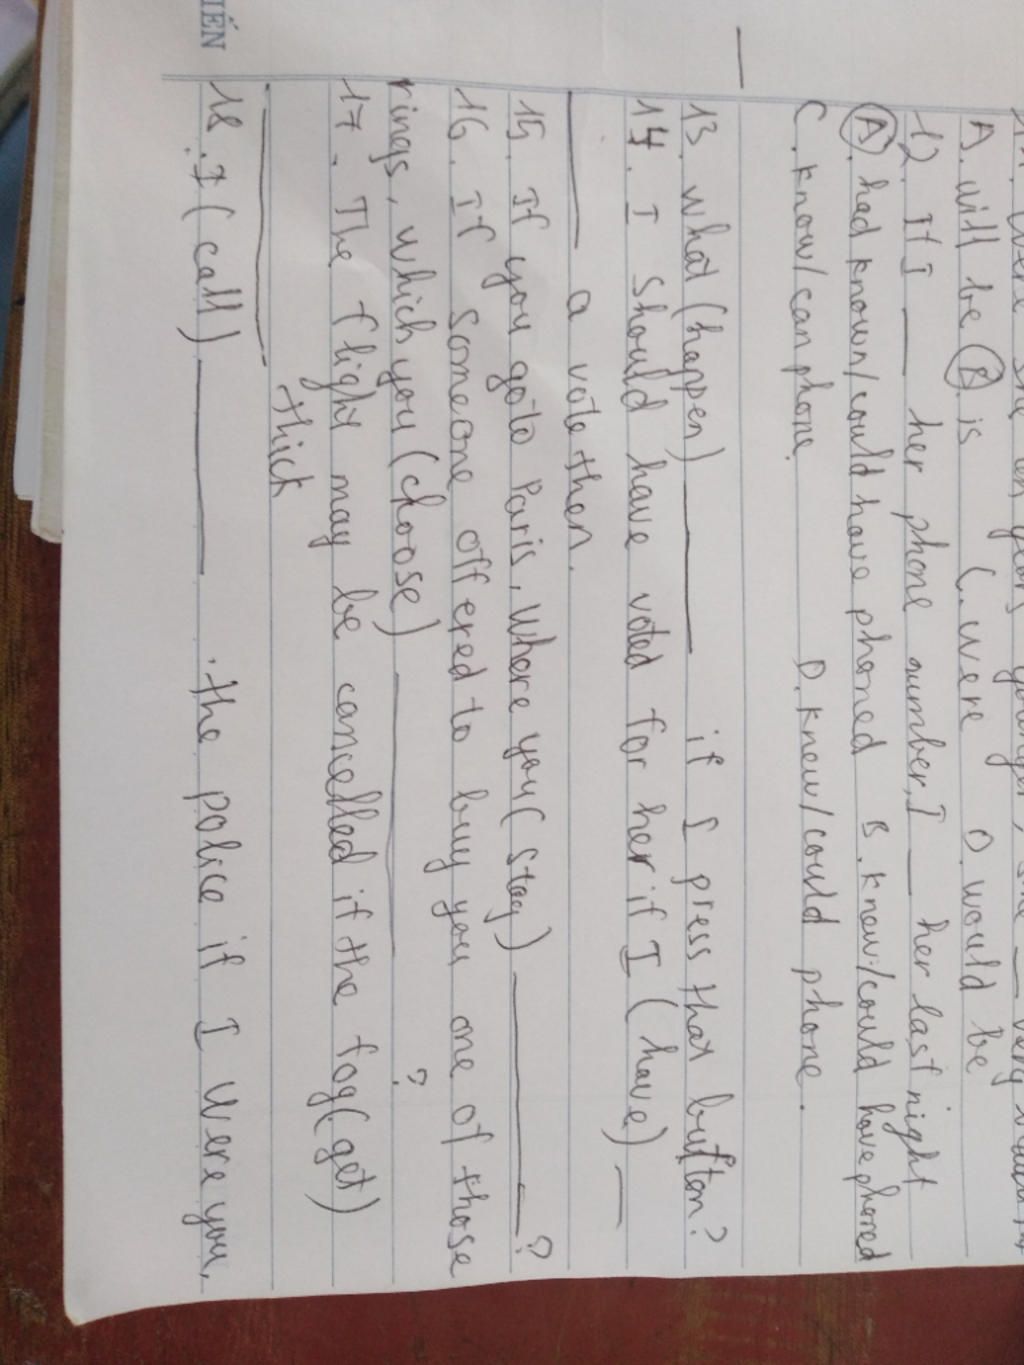 she ten years younger, she
A. will be B. is C. were D. would be
12. If I ___ her phone number, I ___ her last night
A. had known/could have phoned B. know/could have phoned
C. know/can phone. D. knew/could phone.
13. what (happen) ___ if I press that button?
14. I should have voted for her if I (have) ___
___ a vote then.
15. If you go to Paris, Where you (stay) ___?
16. If someone offered to buy you one of those
rings, which you (choose) ___?
17. The flight may be cancelled if the fog (get)
___ thick
18. I (call) ___ the police if I were you.
IẾN